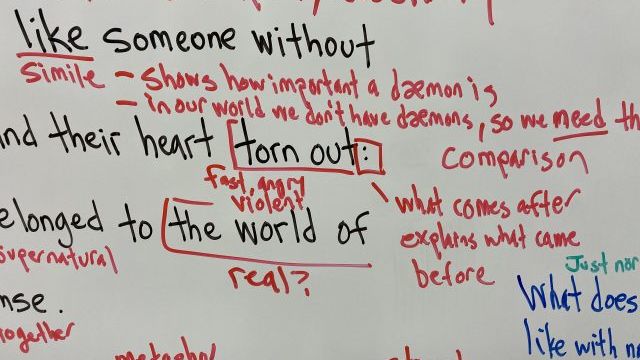 like someone without
Simile - shows how important a dæmon is
- in our world we don't have dæmons, so we need
comparison
their heart torn out:
fast, angry
violent
what comes after
explains what came
before
to the world of
supernatural
real?
Just
What does
like with
together